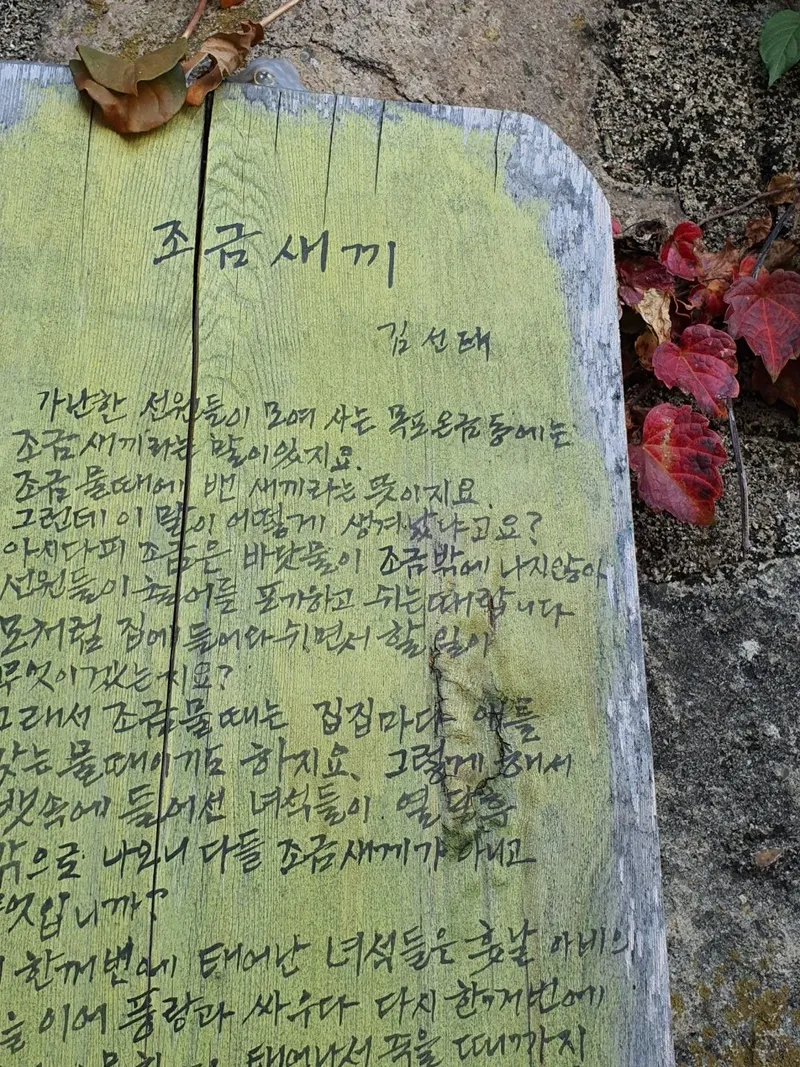 조금새끼
김선태
가난한 선원들이 모여 사는 목포온금동에는
조금새끼라는 말이 있지요.
조금 물때에 밴 새끼라는 뜻이지요.
그런데 이 말이 어떻게 생겨났냐고요?
아시다피 조금은 바닷물이 조금밖에 나지않아
선원들이 출어를 포기하고 쉬는때랍니다
모처럼 집에 들어다쉬면서 할 일이
무엇이겠는지요?
그래서 조금물때는 집집마다 애를
갖는 물때이기도 하지요. 그렇게 해서
뱃속에 들어선 녀석들이 열 달후
밖으로 나오니 다들 조금새끼가 아니고
무엇입니까?
한꺼번에 태어난 녀석들은 훗날 아비의
을 이어 풍랑과 싸우다 다시 한꺼번에
태어나서 죽을 때까지